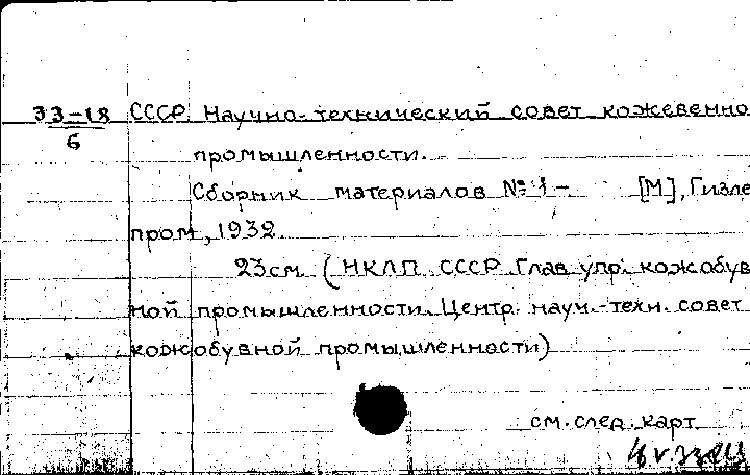 33-18 СССР. Научно-технический совет кожевенно
6
промышленности.
Сборник материалов №1- [М], Гизле
пром, 1932.
23см. (НКЛП СССР Глав. упр. кожобув
ной промышленности. Центр. науч.-техн. совет
кожобувной промышленности)
см. след. карт.